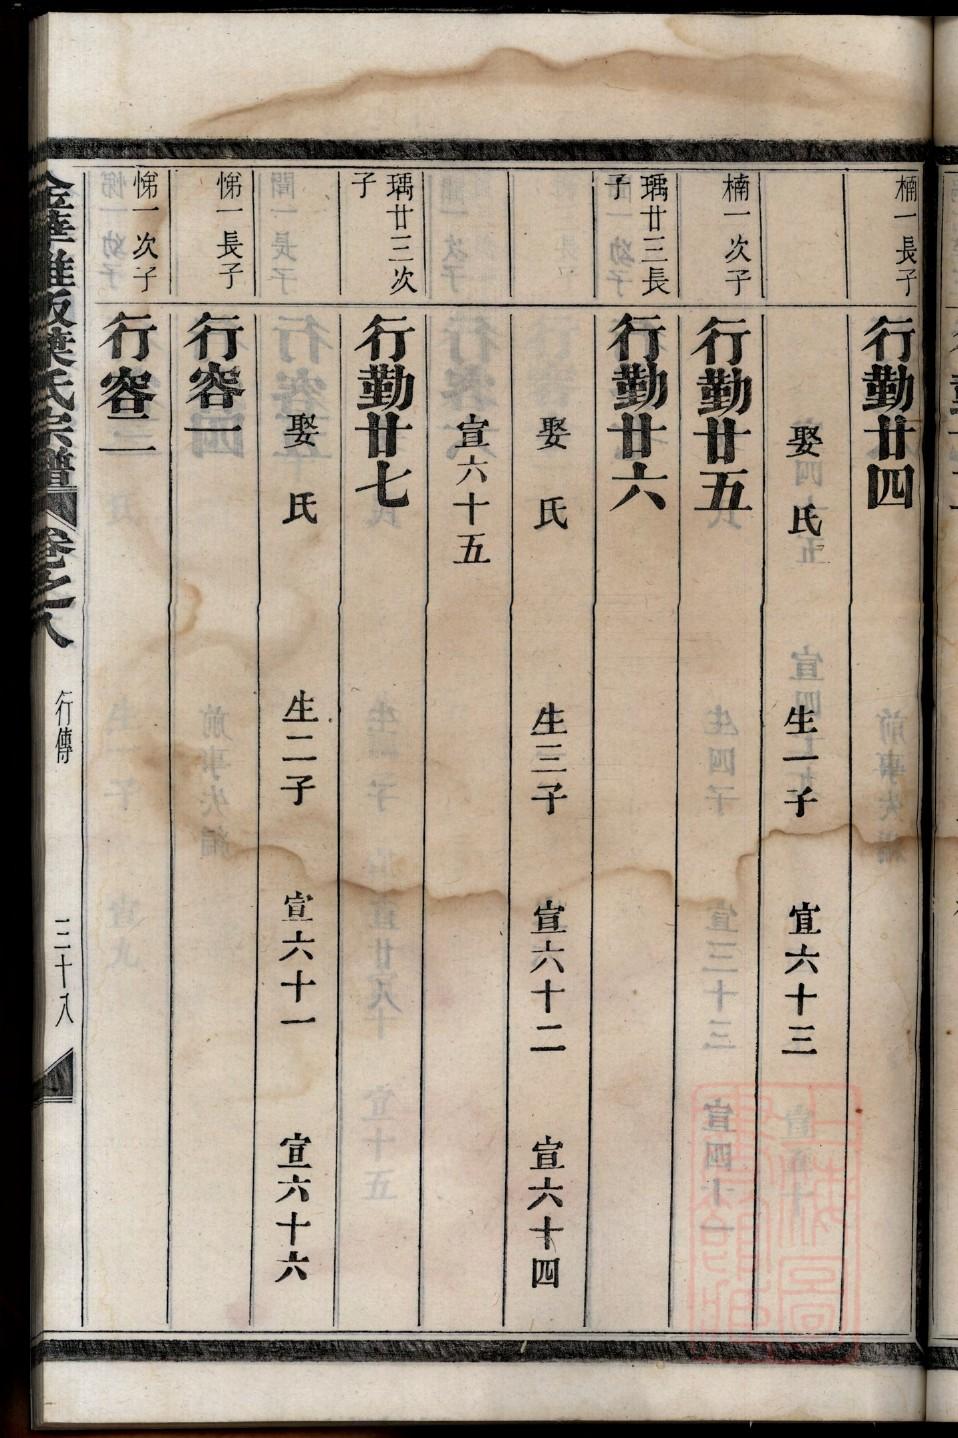 楠一長子
行勤廿四
娶 氏 生一子 宣六十三
楠一次子
行勤廿五
瑀廿三長子
行勤廿六
娶 氏 生三子 宣六十二 宣六十四
宣六十五
瑀廿三次子
行勤廿七
娶 氏 生二子 宣六十一 宣六十六
悌一長子
行容一
悌一次子
行容二
葉氏宗譜 卷之八 行傳 三十八